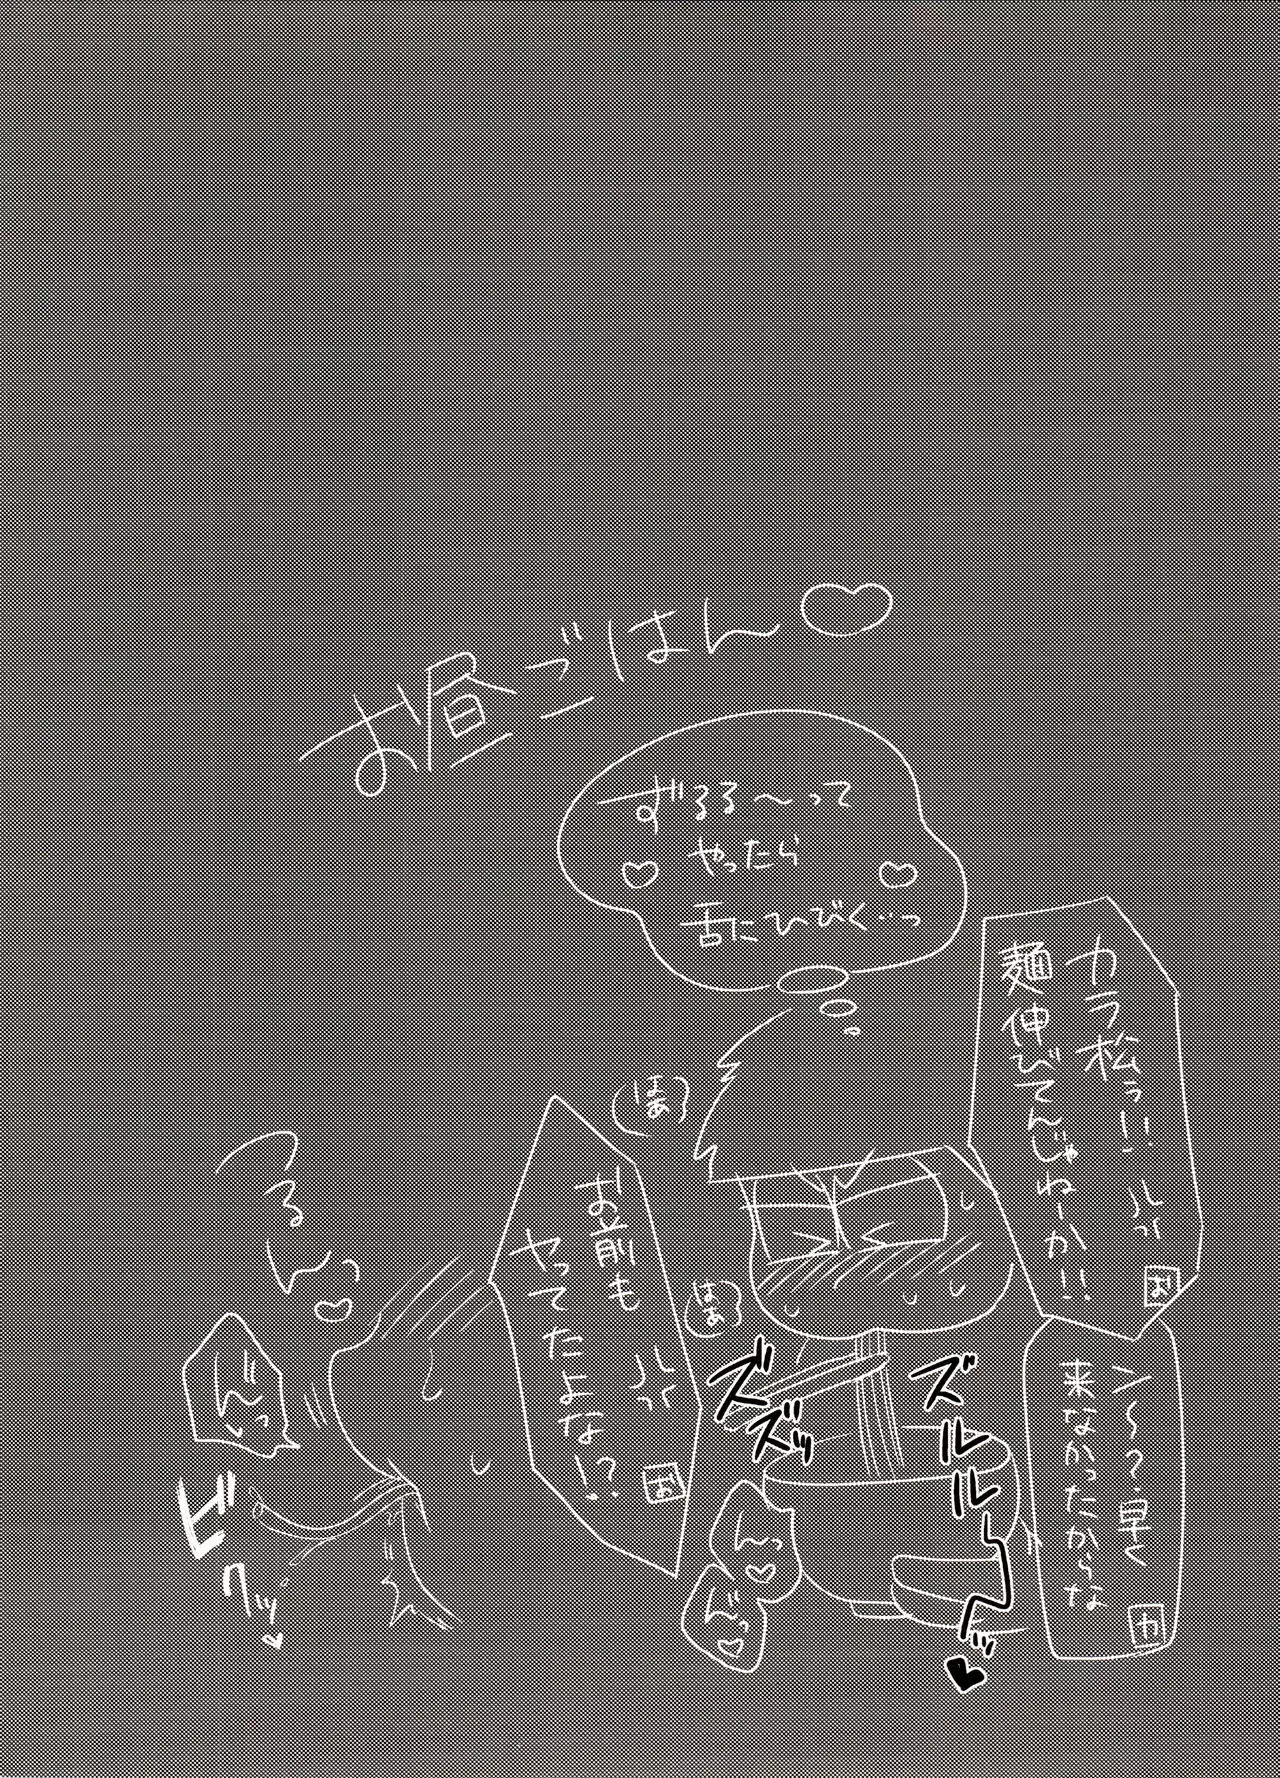 お昼ごはん♡
カラ松ぅ!!
麺伸びてんじゃねーか!!
お
ン〜?早く
来なかったからな
カ
ずるる〜って
やったら
舌にひびく…っ
はぁ
はぁ
お前も
やってたよな!?
お
ズルルーーッ♥
ズズッ
ん〜♡
んっ♡
るん♡
んっ
ビクッ♡